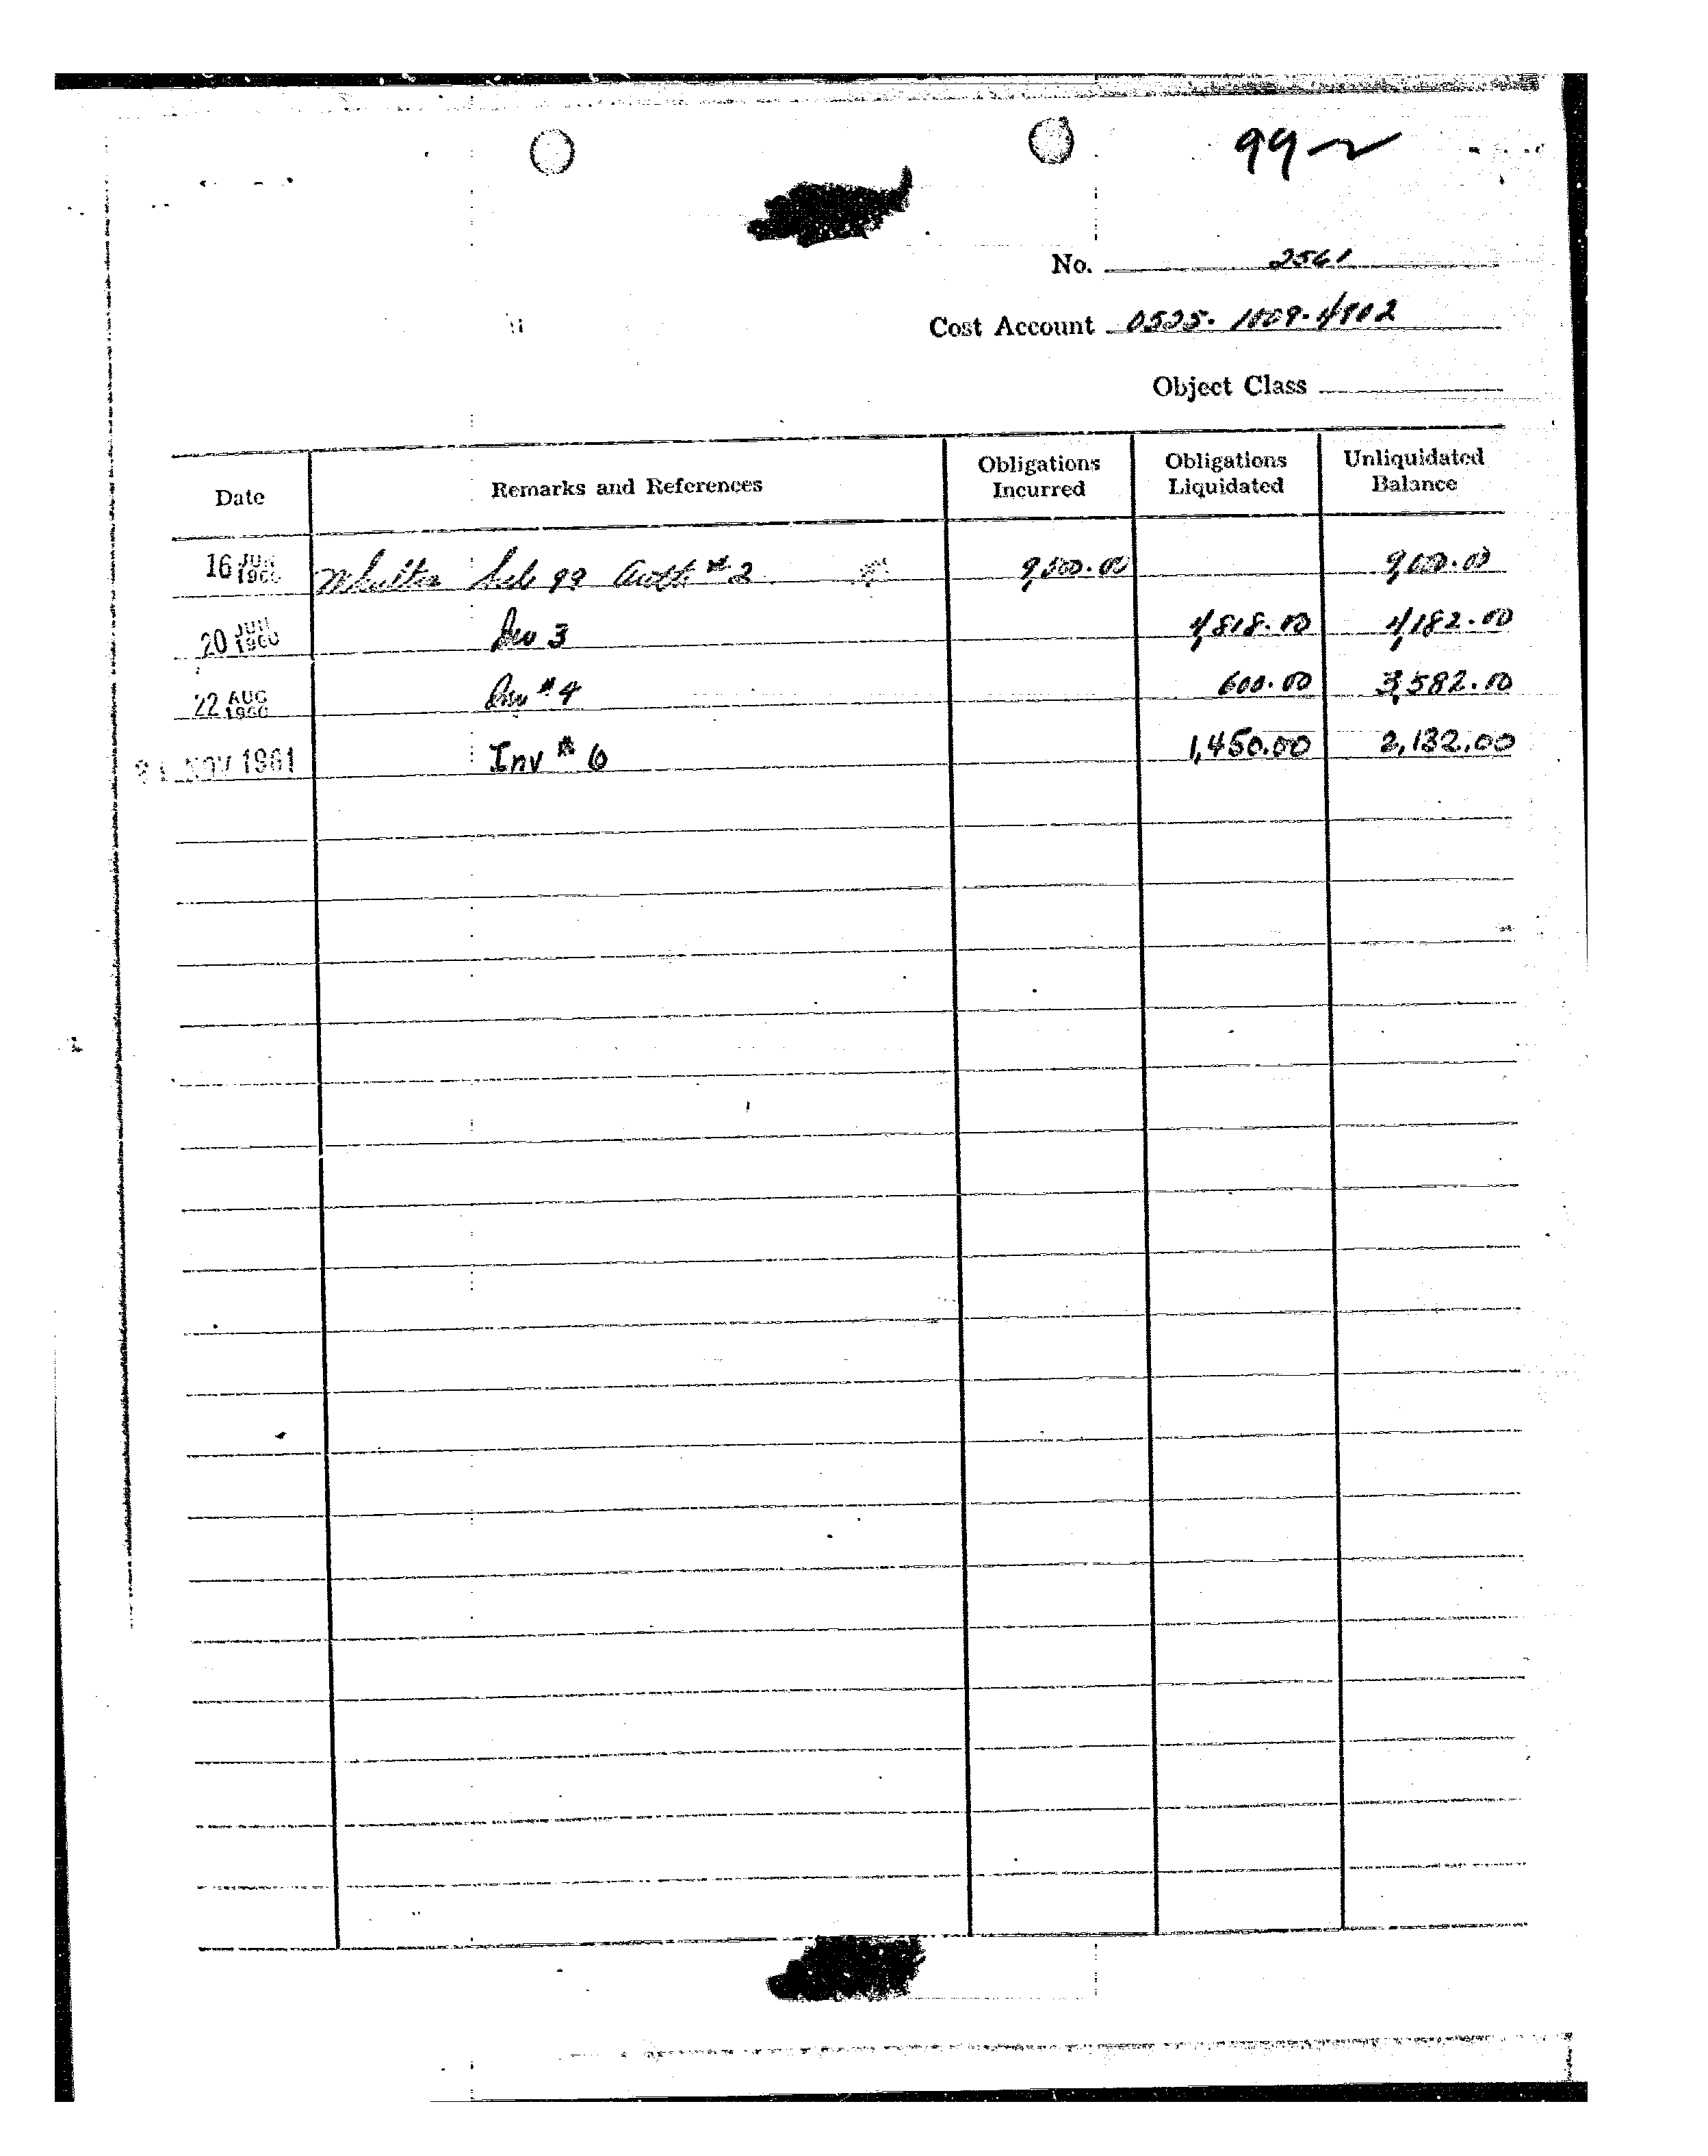 99
No. 2561
Cost Account 0525-1009-4902
Object Class
Date Remarks and References Obligations Incurred Obligations Liquidated Unliquidated Balance
16 JUN 1960 Sub 99 Auth #2 9,000.00 9,000.00
20 JUN 1960 Inv 3 4,818.00 4,182.00
22 AUG 1960 Inv #4 600.00 3,582.00
NOV 1961 Inv # 6 1,450.00 2,132.00